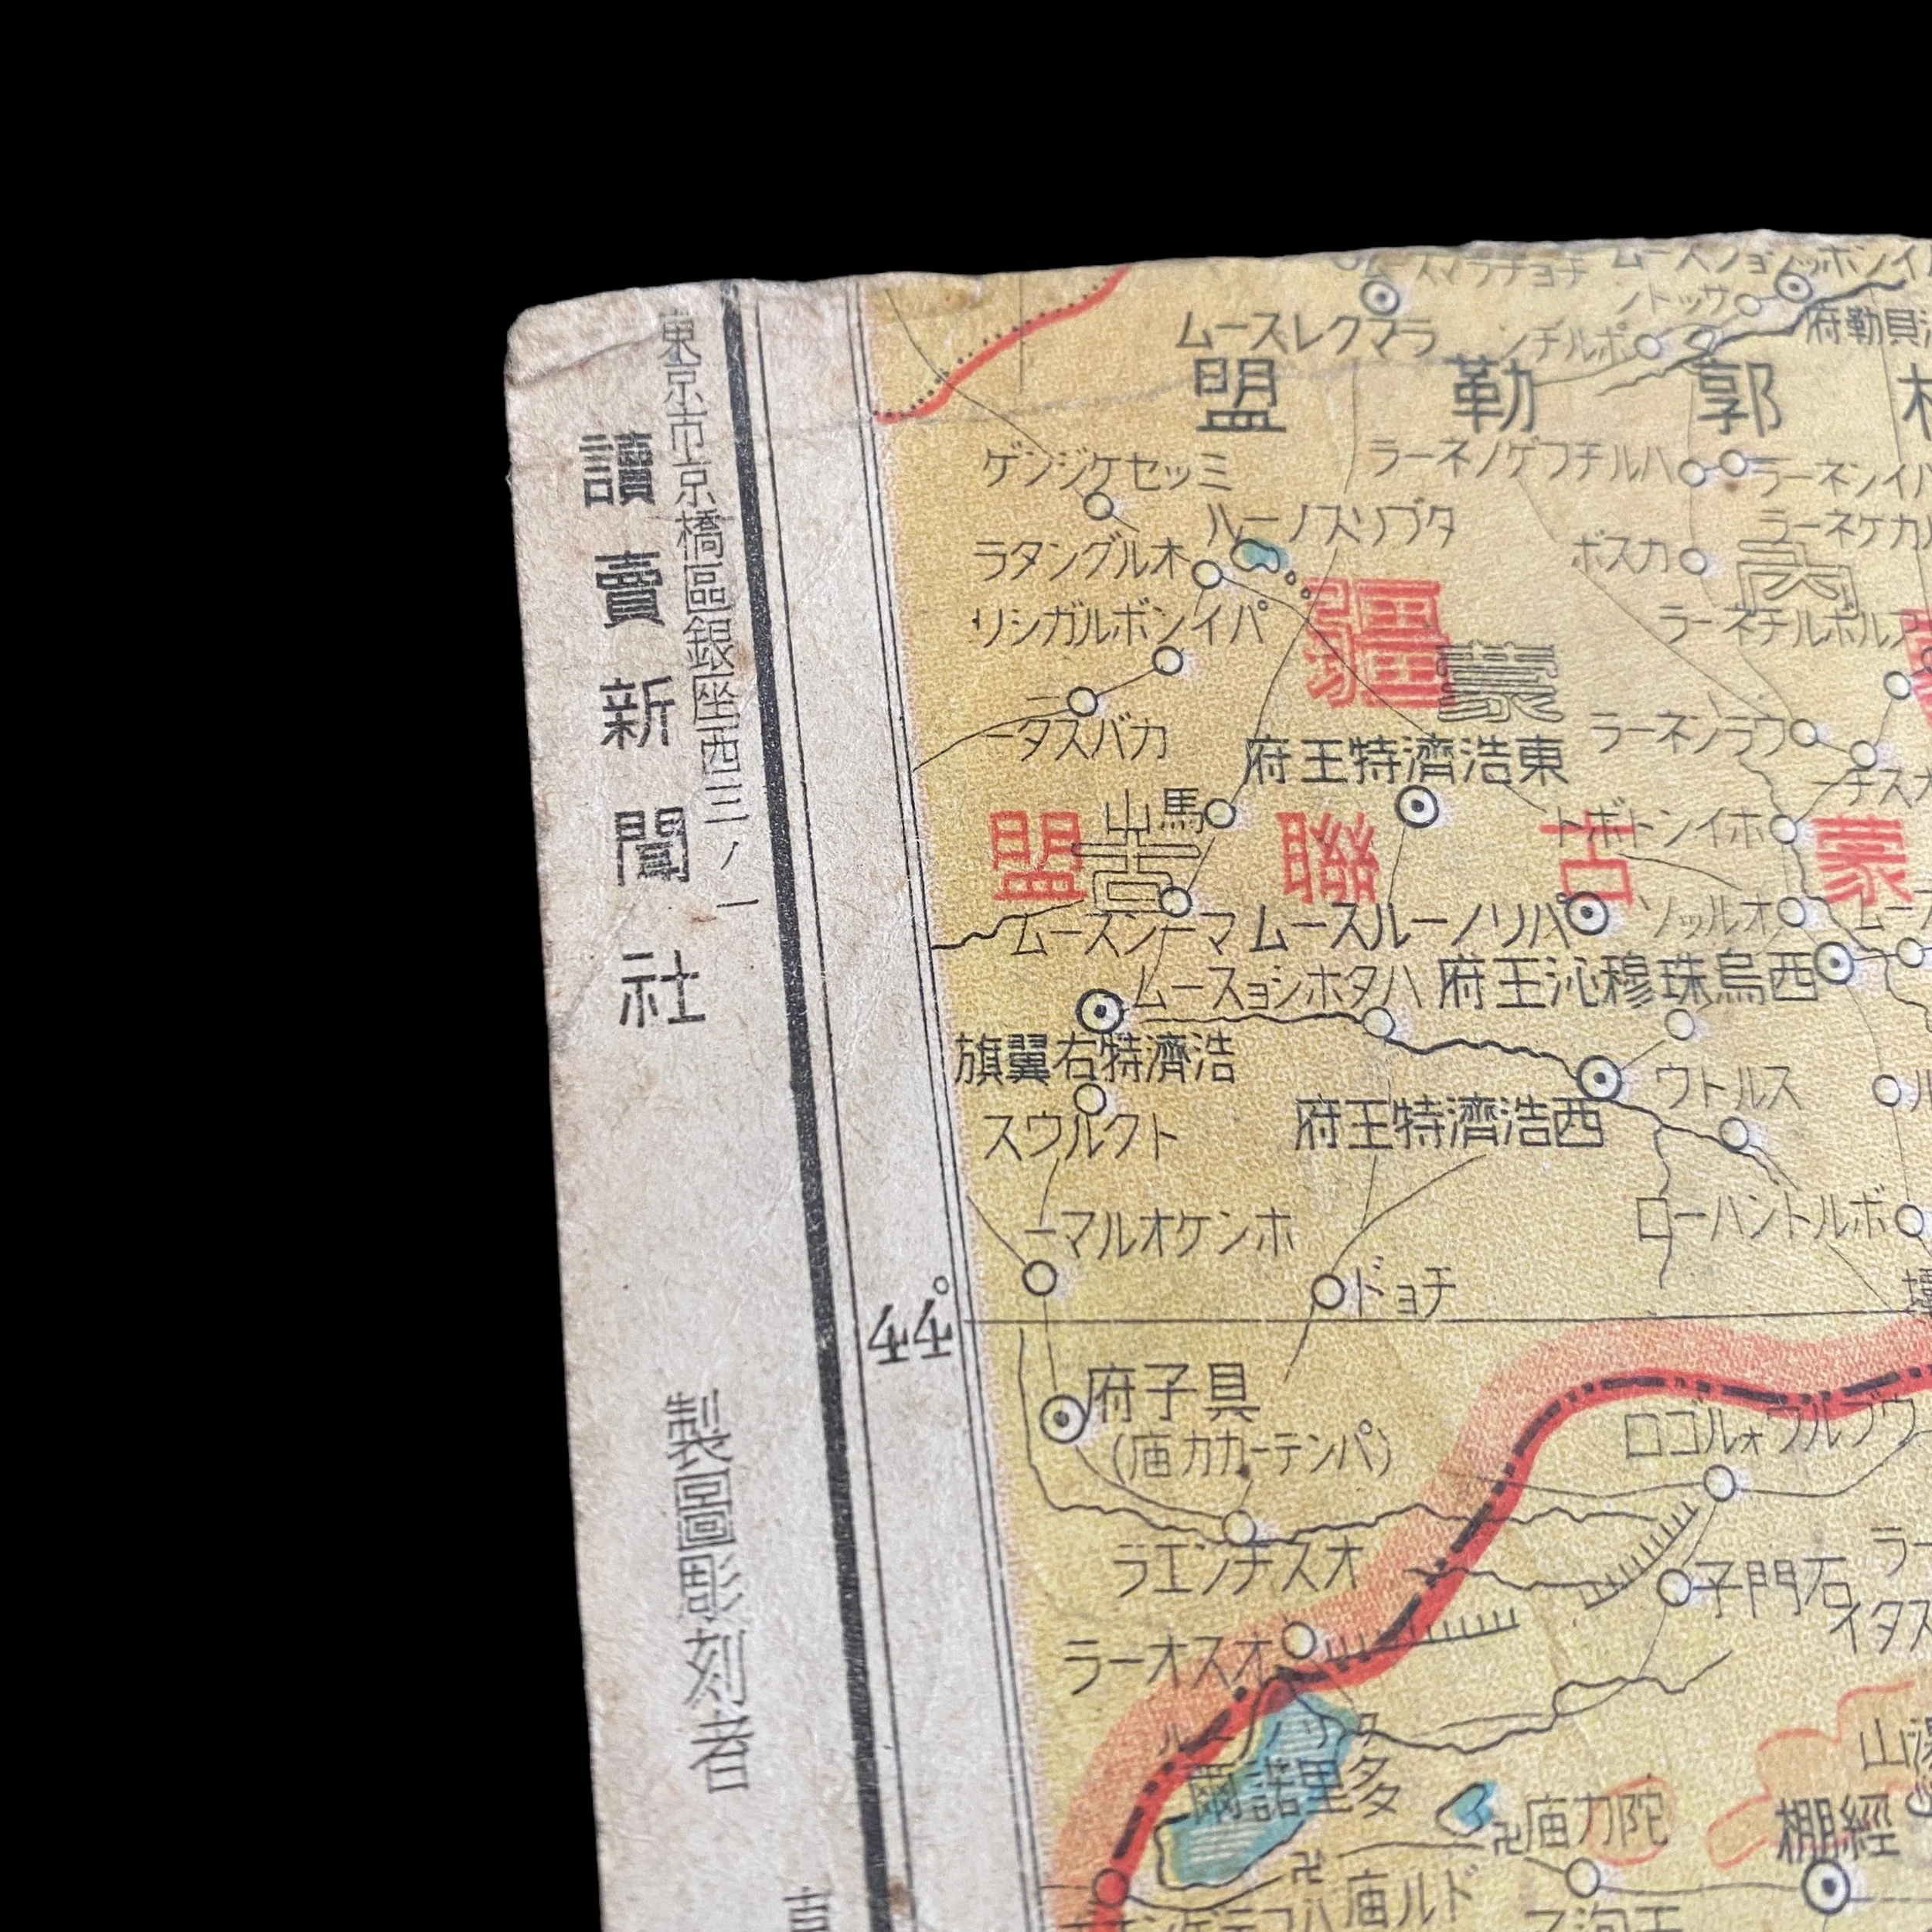 東京市京橋區銀座西三ノ一
讀賣新聞社
製圖彫刻者
ムースレクマラ
ンチルポ
ノトッサ
府勒貝
盟勒郭
ゲンジケセッミ
ラーネノゲフチルハ
ラーネンイハ
ハーノスリブタ
ラーネケカ
ラタングルオ
ボスカ
内
リシガルボンイパ
ラーネチルホル
疆
蒙
ータスバカ
府王特濟浩東
ラーネンラウ
ーチスナ
山馬
トボトンイホ
盟聯古蒙
古
ムースンーマ
ムースルーノリハ
ソッルオ
ムースョシホタハ
府王沁穆珠烏西
旗翼右特濟浩
スウルクト
府王特濟浩西
ウトルス
ーマルオケンホ
ローハントルボ
ドョチ
府子具
(庙カカーテンパ)
ロゴルォワルブウ
ラエンチスオ
子門石
イタス
ラーオスオ
ルーノリタ
爾諾里多
庙力陀
棚經
庙ルド